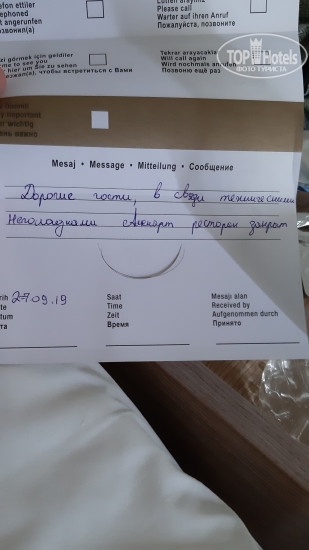 efon ettiler
ephoned
t angerufen
звонил(а)
Lütfen arayınız
Please call
Warter auf ihren Anruf
Пожалуйста, позвоните
TOP Hotels
ФОТО ТУРИСТА
zi görmek için geldiler
me to see you
am um Sie zu sehen
езжал(а), чтобы встретиться с Вами
Tekrar arayacaklar
Will call again
Wird nochmals anrufen
Позвоню ещё раз
y important
r wichtig
ень важно
Mesaj • Message • Mitteilung • Сообщение
Дорогие гости, в связи техническими
Неполадками Алекарт ресторан закрат
rih 27.09.19
te
tum
та
Saat
Time
Zeit
Время
Mesajı alan
Received by
Aufgenommen durch
Принято